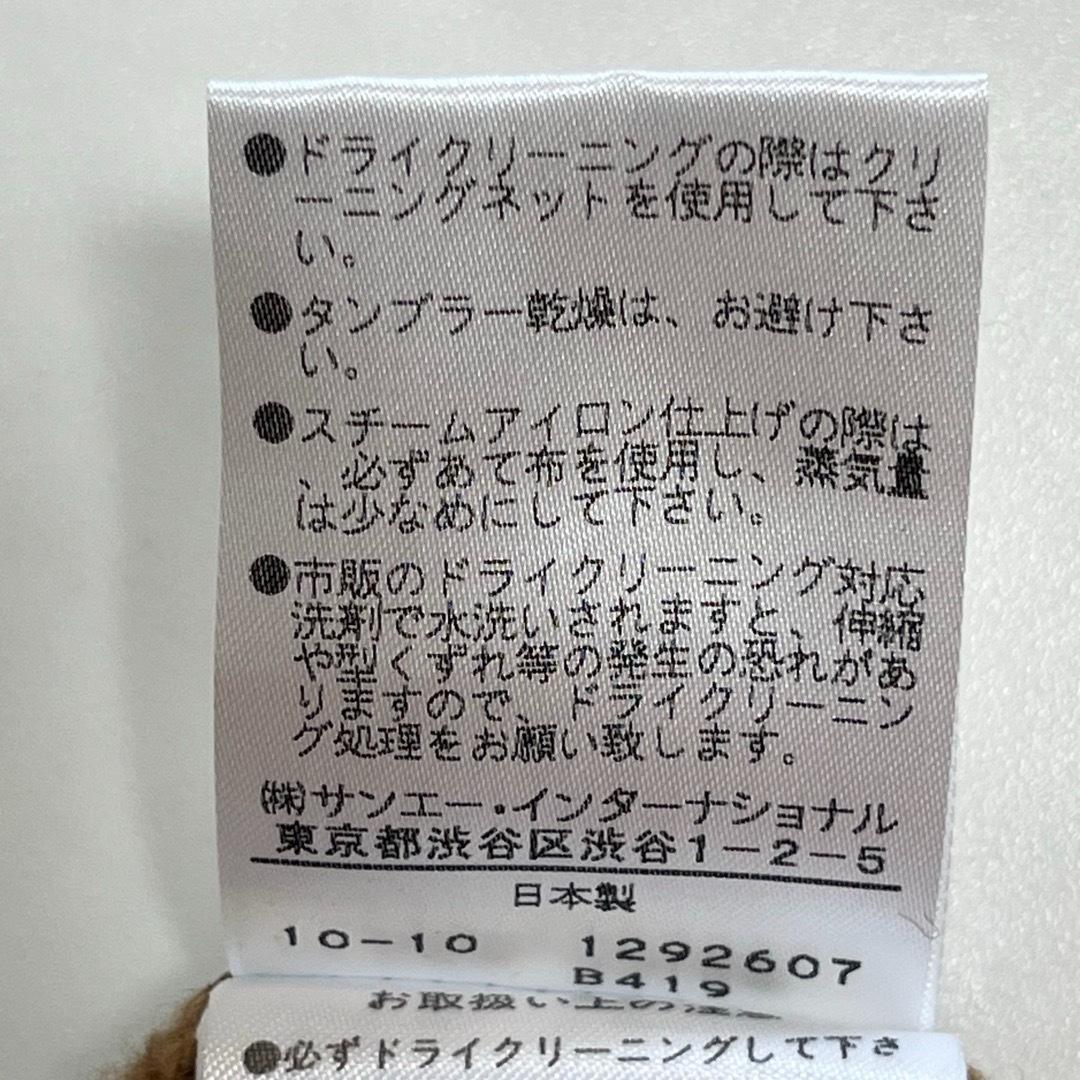 ●ドライクリーニングの際はクリ
ーニングネットを使用して下さ
い。
●タンブラー乾燥は、お避け下さ
い。
●スチームアイロン仕上げの際は
、必ずあて布を使用し、蒸気量
は少なめにして下さい。
●市販のドライクリーニング対応
洗剤で水洗いされますと、伸縮
や型くずれ等の発生の恐れがあ
りますので、ドライクリーニン
グ処理をお願い致します。
㈱サンエー・インターナショナル
東京都渋谷区渋谷1-2-5
日本製
10-10 1292607
B419
お取扱い上の注意
●必ずドライクリーニングして下さ